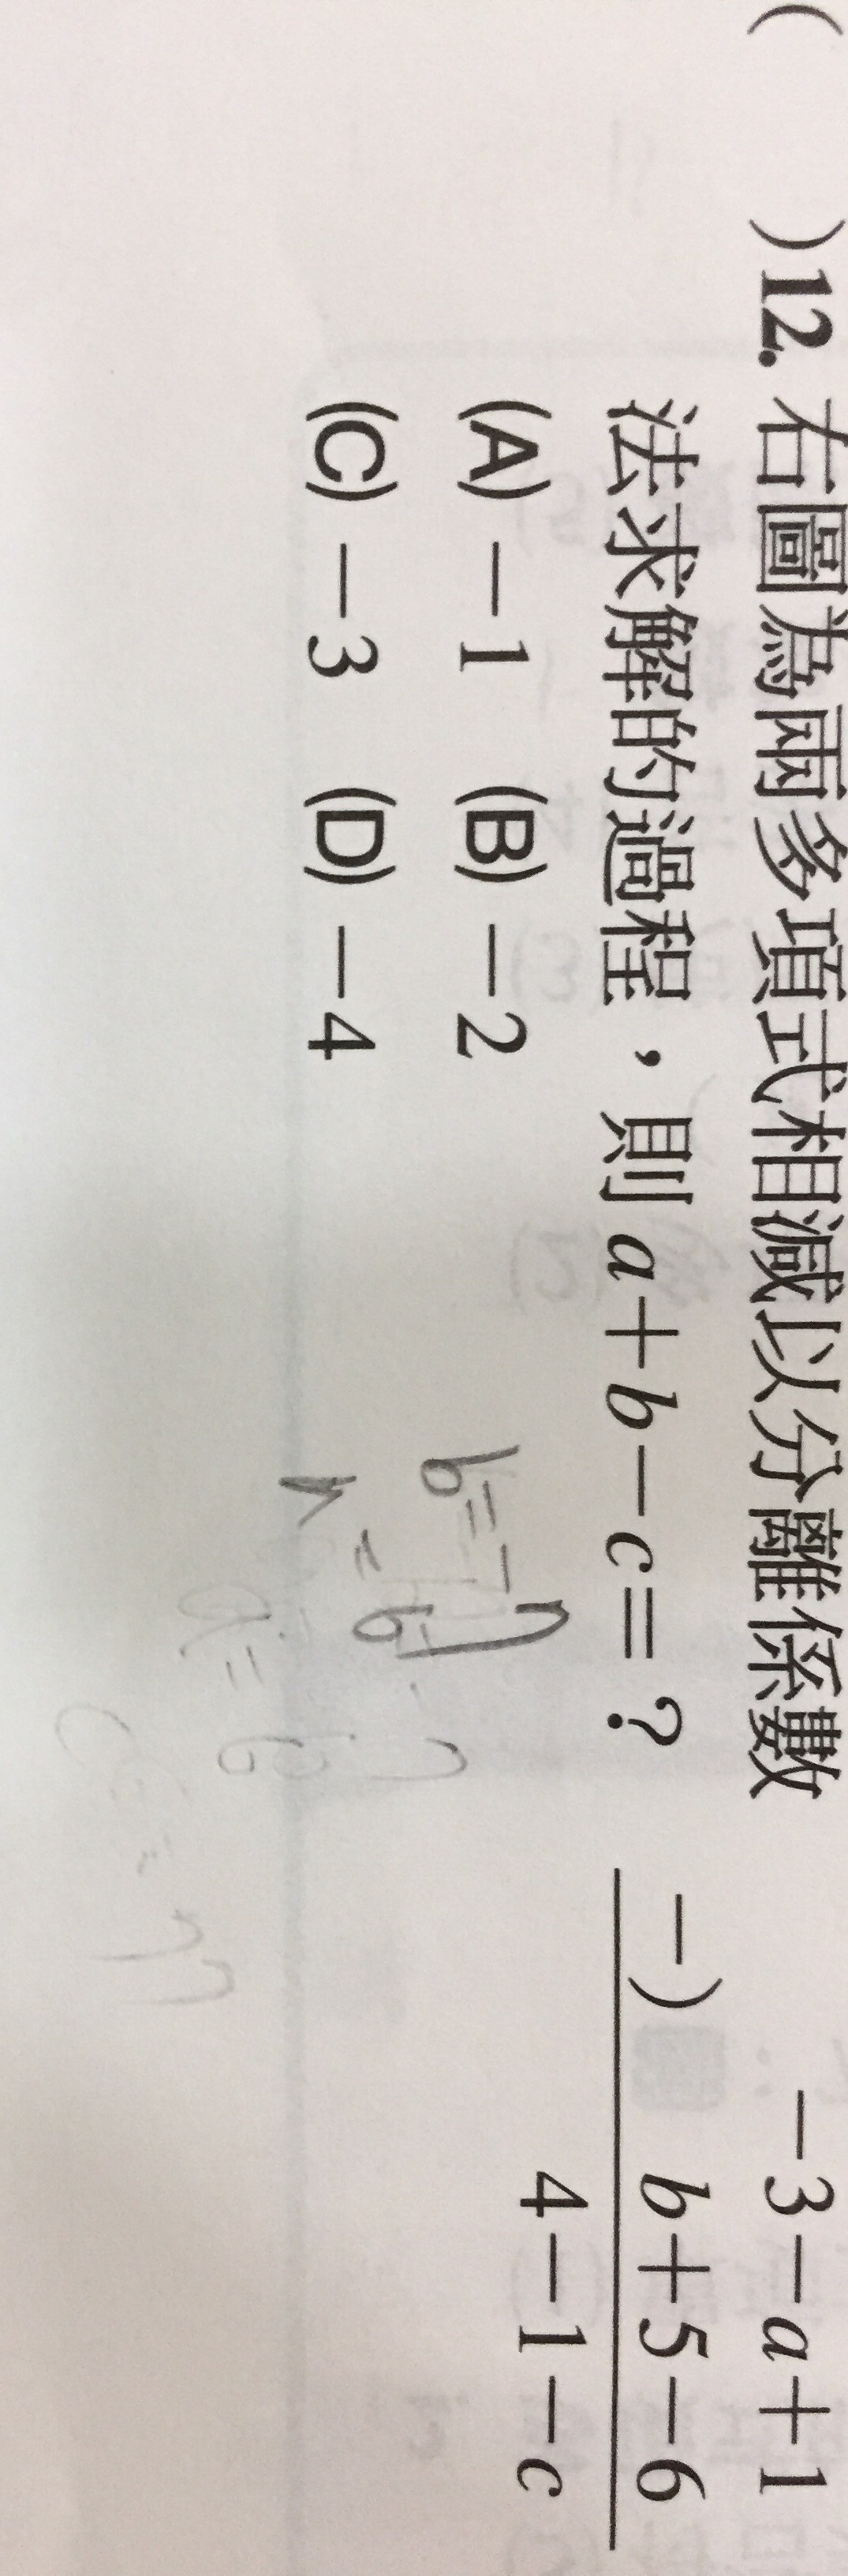 ( )12. 右圖為兩多項式相減以分離係數
法求解的過程，則 a＋b－c＝？
(A) －1 (B) －2
(C) －3 (D) －4
－3－a＋1
－) b＋5－6
4－1－c
b=-7